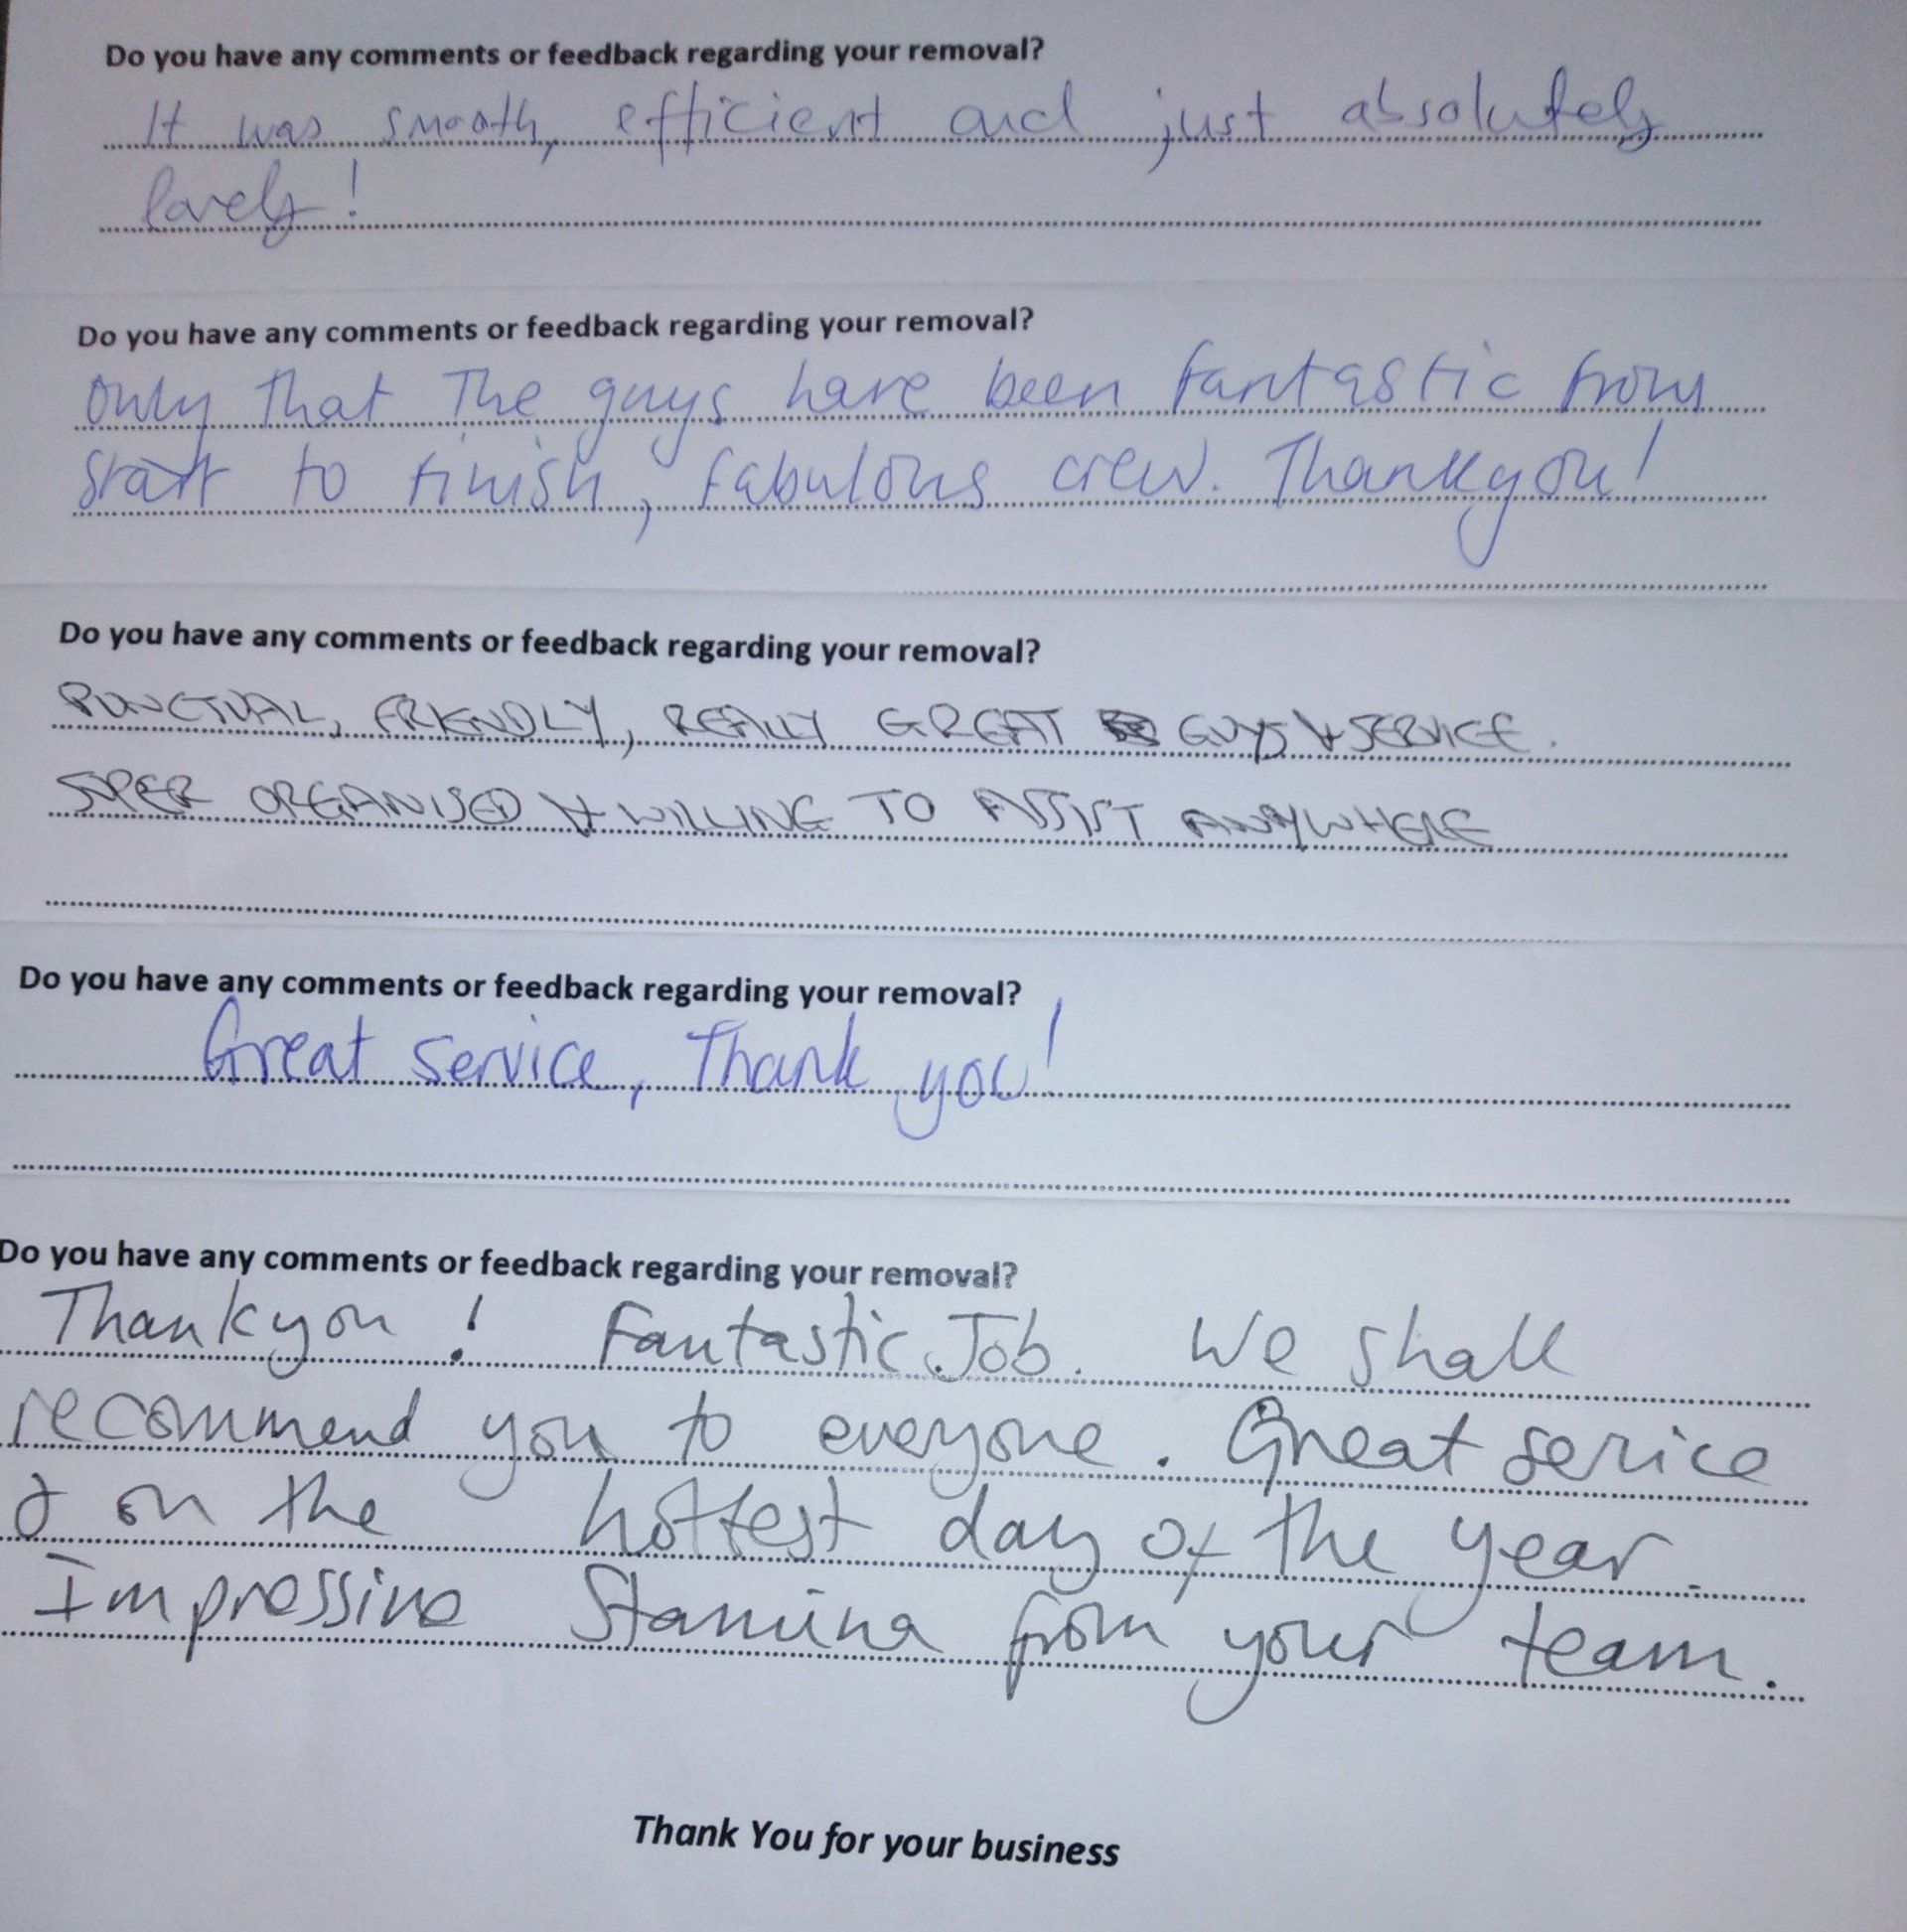 Do you have any comments or feedback regarding your removal?
It was smooth, efficient and just absolutely
lovely!
Do you have any comments or feedback regarding your removal?
Only that The guys have been fantastic from
start to finish, fabulous crew. Thankyou!
Do you have any comments or feedback regarding your removal?
PUNCTUAL, FRIENDLY, REALLY GREAT GUYS & SERVICE.
SUPER ORGANISED & WILLING TO ASSIST ANYWHERE
Do you have any comments or feedback regarding your removal?
Great service, Thank you!
Do you have any comments or feedback regarding your removal?
Thankyou! Fantastic Job. We shall
recommend you to everyone. Great serice
& on the hottest day of the year.
Impressive Stamina from your team.
Thank You for your business